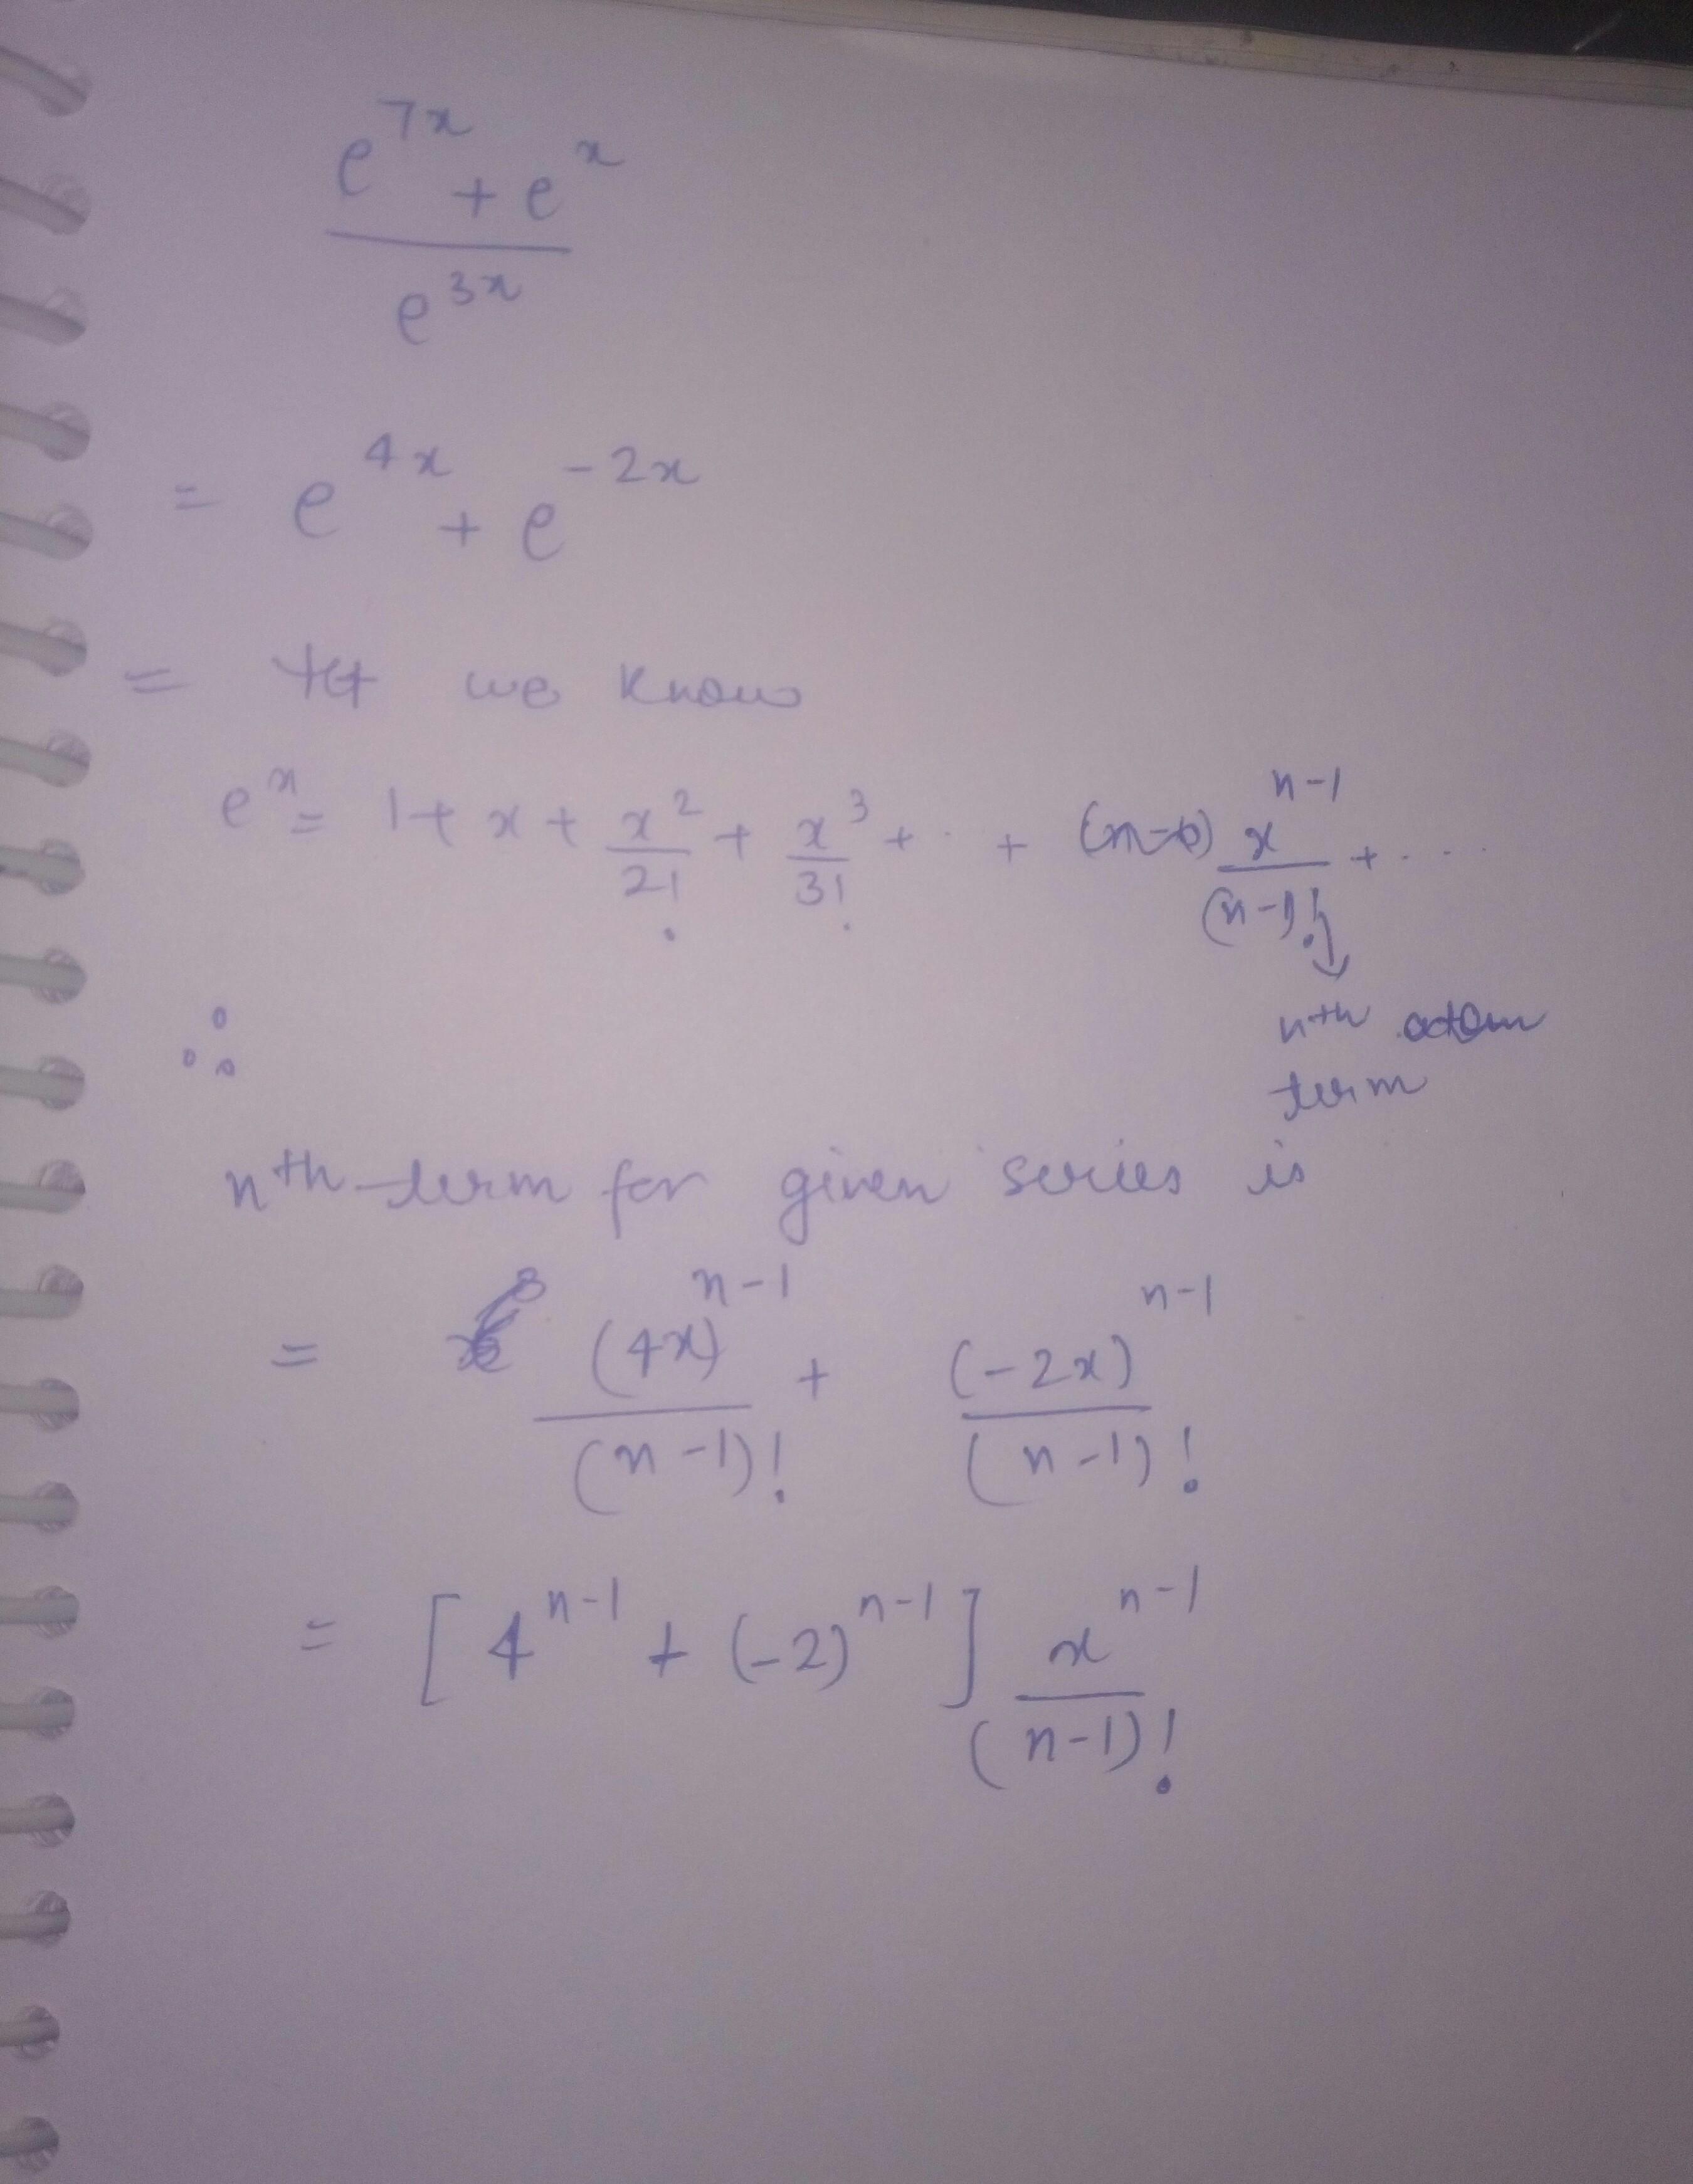 e^{7x} + e^x
e^{3x}
= e^{4x} + e^{-2x}
= we know
e^x = 1 + x + x^2/2! + x^3/3! + .. + x^{n-1}/(n-1)! + ....
nth
term
∴
nth term for given series is
= (4x)^{n-1}/(n-1)! + (-2x)^{n-1}/(n-1)!
= [4^{n-1} + (-2)^{n-1}] x^{n-1}/(n-1)!